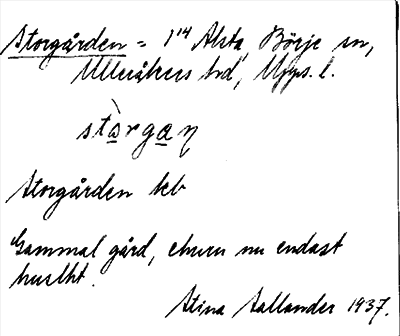 Storgården = 1¹⁴ Alsta, Börje sn,
Ulleråkers hd, Upps. l.
stàrgaŋ
Storgården kb
Gammal gård, ehuru nu endast
huslht.
Stina Aallander 1937.